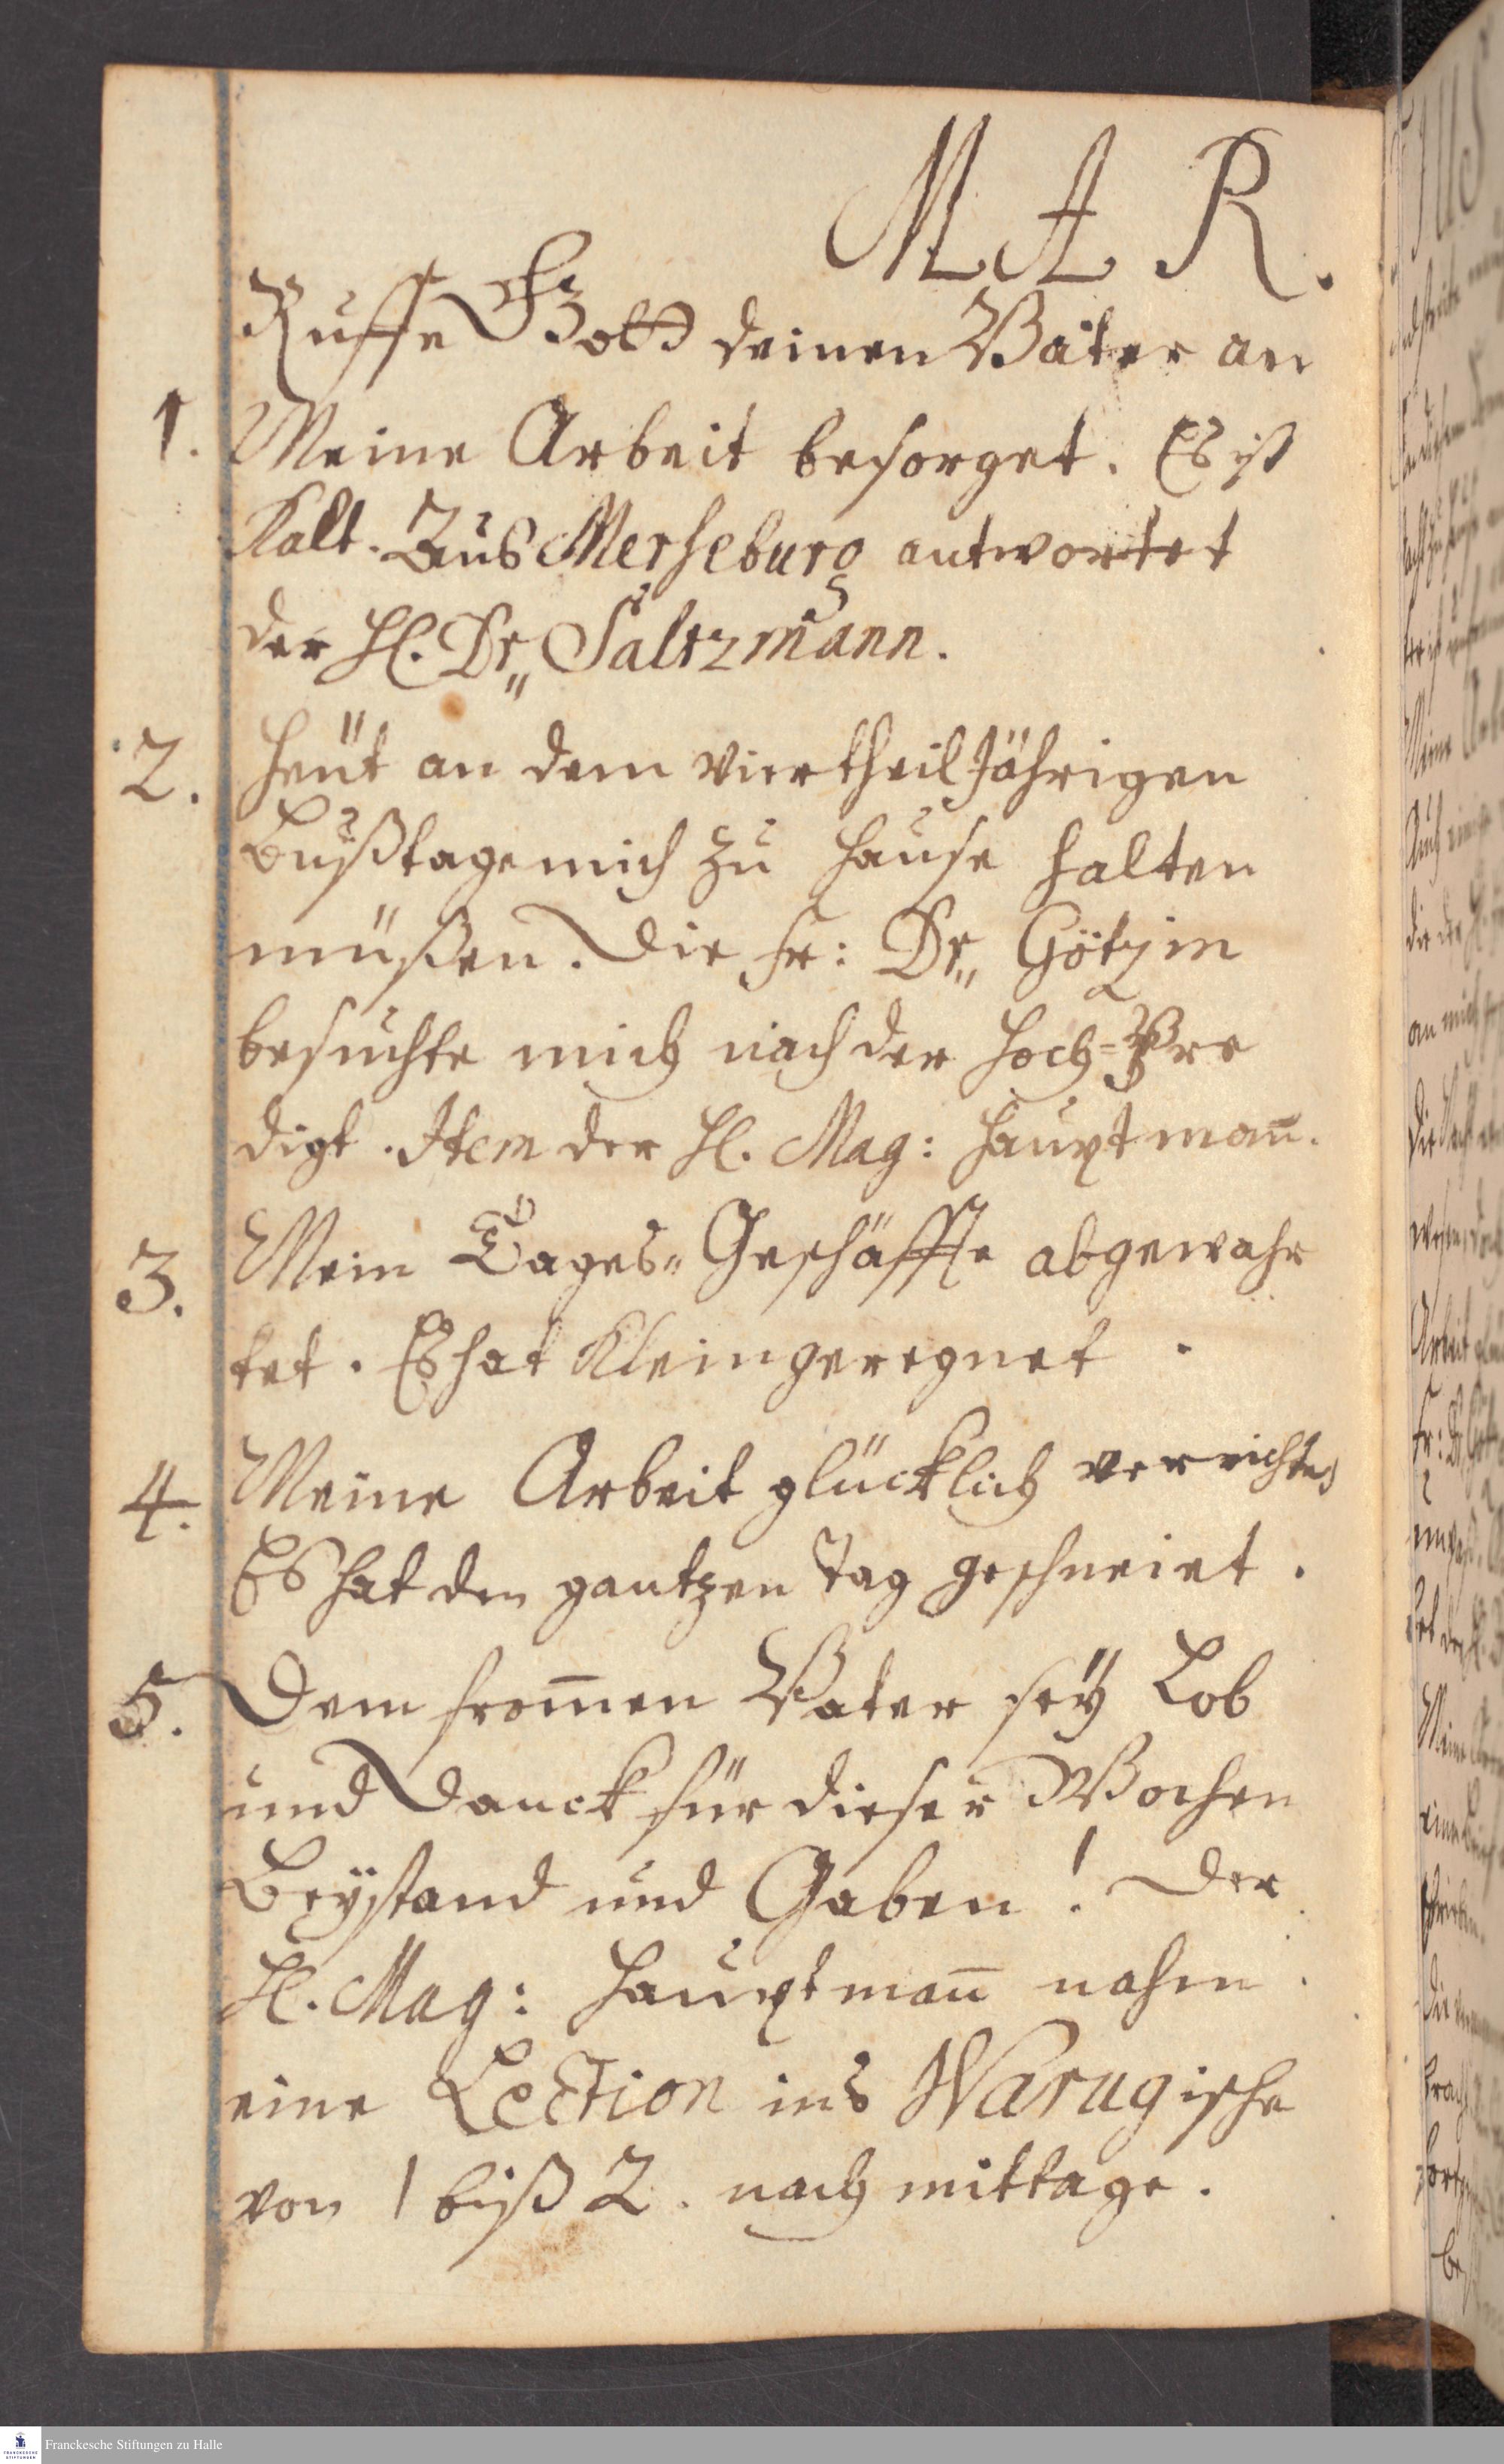 M A R.
Ruffe Gott deinen Vater an
1. Meine Arbeit besorget. Es ist
Kalt. Aus Merseburg antwortet
der H. Dr„ Saltzmann.
2. Heüt an dem viertheil Jährigen
Bußtage mich zu Hause halten
müßen. Die Fr: Dr„ Götzin
besuchte mich nach der Hoch=Pre
digt. Item der H. Mag: Hauptman̄.
3. Mein Tages„ Geschäffte abgewahr
tet. Es hat Klein geregnet.
4. Meine Arbeit glücklich verrichtet
Es hat den gantzen Tag geschneiet.
5. Dem from̄en Vater seÿ Lob
und Danck für dieser Wochen
Beÿstand und Gaben! Der
H. Mag: Hauptman̄ nahm
eine Lection ins Warugische
von 1 biß 2. nach mittage.
Franckesche Stiftungen zu Halle